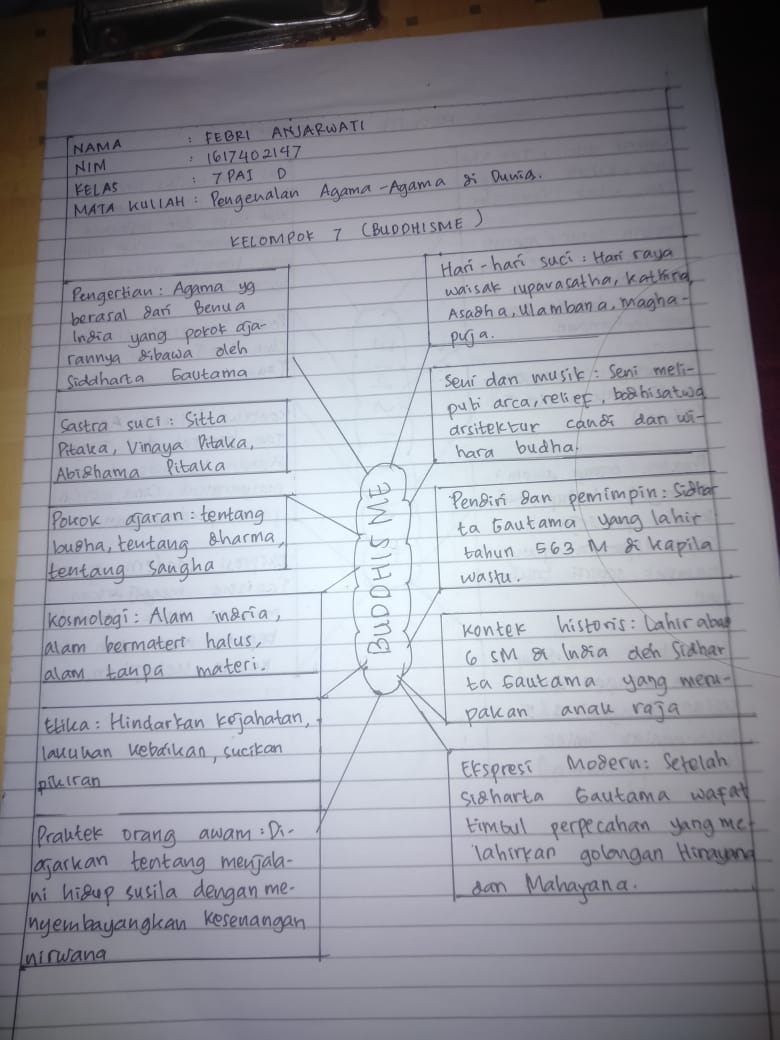 NAMA : FEBRI ANJARWATI
NIM : 1617402147
KELAS : 7 PAI D
MATA KULIAH : Pengenalan Agama-Agama di Dunia.
KELOMPOK 7 (BUDDHISME)
Pengertian : Agama yg
berasal dari Benua
India yang pokok aja-
rannya dibawa oleh
Siddharta Gautama
Sastra suci : Sitta
Pitaka, Vinaya Pitaka,
Abidhama Pitaka
Pokok ajaran : tentang
budha, tentang dharma,
tentang sangha
Kosmologi : Alam indria,
alam bermateri halus,
alam tanpa materi.
Etika : Hindarkan kejahatan,
lakukan kebaikan, sucikan
pikiran
Praktek orang awam : Di-
ajarkan tentang menjala-
ni hidup susila dengan me-
nyembayangkan kesenangan
nirwana
BUDDHISME
Hari-hari suci : Hari raya
waisak, upavasatha, kathina,
Asadha, Ulambana, magha-
puja.
Seni dan musik : Seni meli-
puti arca, relief, bodhisatwa
arsitektur candi dan wi-
hara budha.
Pendiri dan pemimpin : Sidhar
ta Gautama yang lahir
tahun 563 M di kapila
wastu.
Kontek historis : Lahir abad
6 SM di India oleh Sidhar
ta Gautama yang meru-
pakan anak raja
Ekspresi Modern : Setelah
Sidharta Gautama wafat
timbul perpecahan yang me-
lahirkan golongan Hinayana
dan Mahayana.